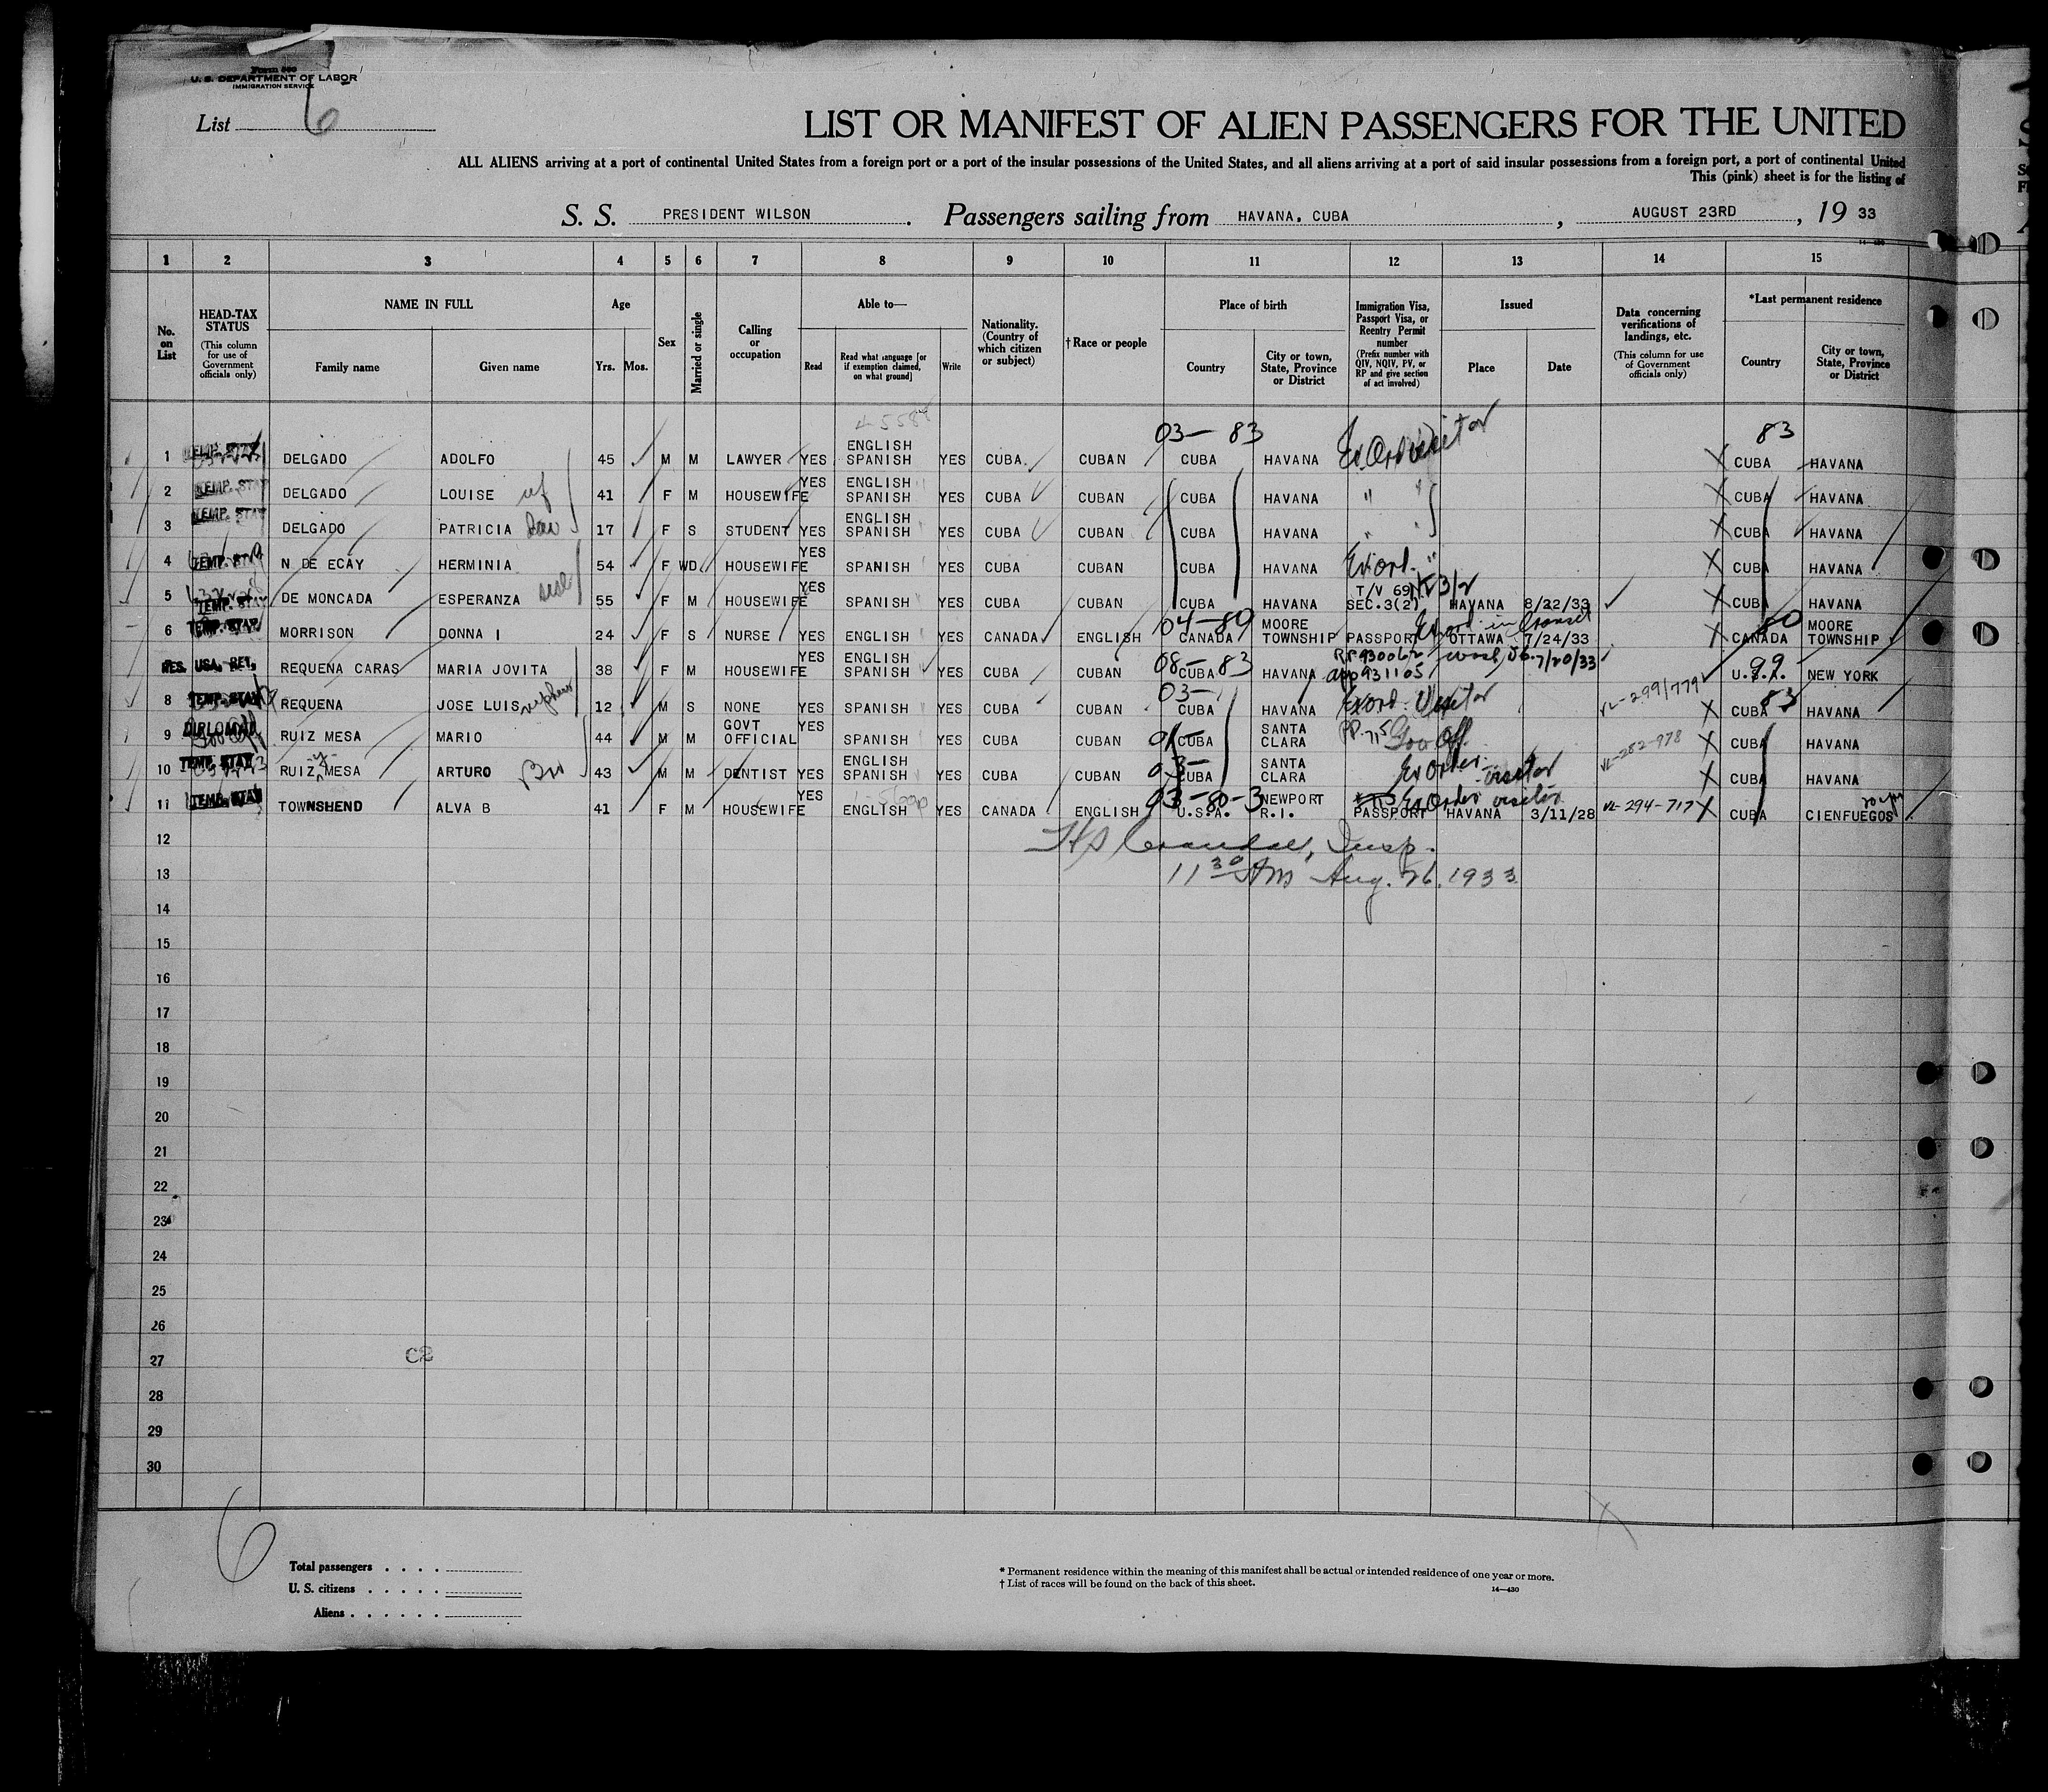 Form 500
U. S. DEPARTMENT OF LABOR
IMMIGRATION SERVICE
List 6
LIST OR MANIFEST OF ALIEN PASSENGERS FOR THE UNITED
ALL ALIENS arriving at a port of continental United States from a foreign port or a port of the insular possessions of the United States, and all aliens arriving at a port of said insular possessions from a foreign port, a port of continental United
This (pink) sheet is for the listing of
S. S. PRESIDENT WILSON. Passengers sailing from HAVANA, CUBA, AUGUST 23RD, 19 33
1 2 3 4 5 6 7 8 9 10 11 12 13 14 15
No. on List
HEAD-TAX STATUS (This column for use of Government officials only)
NAME IN FULL Family name Given name
Age Yrs. Mos.
Sex
Married or single
Calling or occupation
Able to— Read Read what language [or if exemption claimed, on what ground] Write
Nationality. (Country of which citizen or subject)
†Race or people
Place of birth Country City or town, State, Province or District
Immigration Visa, Passport Visa, or Reentry Permit number (Prefix number with QIV, NQIV, PV, or RP and give section of act involved)
Issued Place Date
Data concerning verifications of landings, etc. (This column for use of Government officials only)
*Last permanent residence Country City or town, State, Province or District
03— 83 83
1 TEMP. STAY DELGADO ADOLFO 45 M M LAWYER YES ENGLISH SPANISH YES CUBA CUBAN CUBA HAVANA Ex Ord visitor X CUBA HAVANA
2 TEMP. STAY DELGADO LOUISE wf 41 F M HOUSEWIFE YES ENGLISH SPANISH YES CUBA CUBAN CUBA HAVANA " " X CUBA HAVANA
3 TEMP. STAY DELGADO PATRICIA Dau 17 F S STUDENT YES ENGLISH SPANISH YES CUBA CUBAN CUBA HAVANA " " X CUBA HAVANA
4 TEMP. STAY N DE ECAY HERMINIA 54 F WD HOUSEWIFE YES SPANISH YES CUBA CUBAN CUBA HAVANA Ex ord. " X CUBA HAVANA
5 TEMP. STAY DE MONCADA ESPERANZA sist 55 F M HOUSEWIFE YES SPANISH YES CUBA CUBAN CUBA HAVANA T/V 69 SEC.3(2) HAVANA 8/22/33 X CUBA HAVANA
6 TEMP. STAY MORRISON DONNA I 24 F S NURSE YES ENGLISH YES CANADA ENGLISH 04—80 CANADA MOORE TOWNSHIP PASSPORT Ex ord in Transit OTTAWA 7/24/33 X 80 CANADA MOORE TOWNSHIP
RES. USA. RET. REQUENA CARAS MARIA JOVITA 38 F M HOUSEWIFE YES ENGLISH SPANISH YES CUBA CUBAN 08—83 CUBA HAVANA RP 930062 app 931105 Wash, 7/20/33 99 U.S.A. NEW YORK
8 TEMP. STAY REQUENA JOSE LUIS nephew 12 M S NONE YES SPANISH YES CUBA CUBAN 03— CUBA HAVANA Ex ord. Visitor VL-299/779 X CUBA 83 HAVANA
9 DIPLOMAT RUIZ MESA MARIO 44 M M GOVT OFFICIAL YES SPANISH YES CUBA CUBAN 01— CUBA SANTA CLARA PP. 715 Gov Off. X CUBA HAVANA
10 TEMP. STAY RUIZ y MESA ARTURO Bro 43 M M DENTIST YES ENGLISH SPANISH YES CUBA CUBAN 03— CUBA SANTA CLARA Ex Order visitor VL-282-978 X CUBA HAVANA
11 TEMP. STAY TOWNSHEND ALVA B 41 F M HOUSEWIFE YES ENGLISH YES CANADA ENGLISH 03—80—3 U.S.A. NEWPORT R.I. Ex Order visitor PASSPORT HAVANA 3/11/28 VL-294-717 X CUBA CIENFUEGOS
12 Insp.
13 11 30 AM Aug. 26, 1933
14
15
16
17
18
19
20
21
22
23
24
25
26
27 C2
28
29
30
6
Total passengers
U. S. citizens
Aliens
* Permanent residence within the meaning of this manifest shall be actual or intended residence of one year or more.
† List of races will be found on the back of this sheet.
14—430